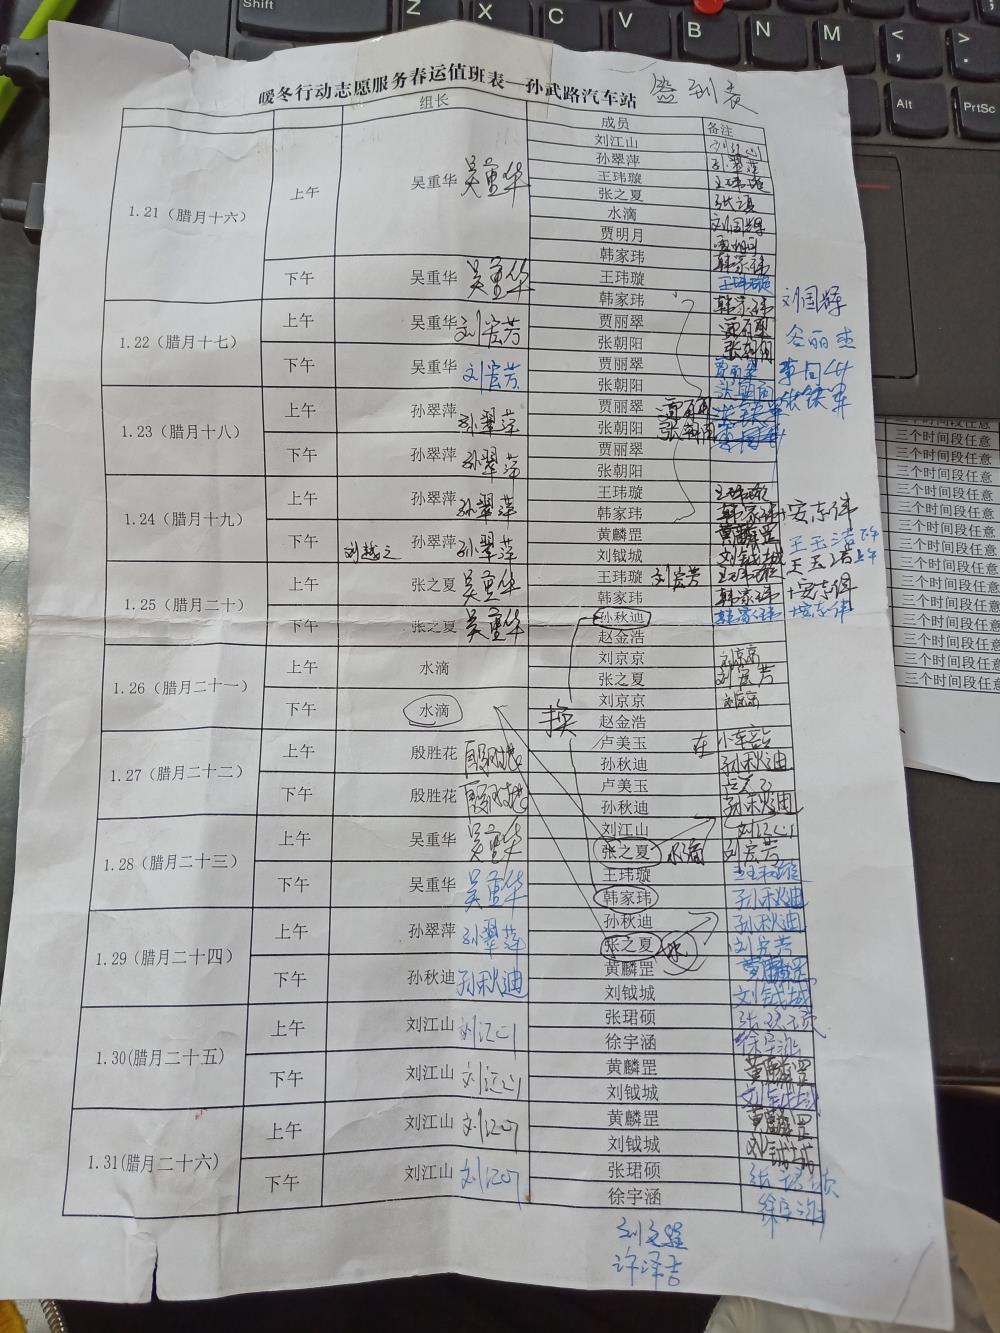 Shift
Z X C V B N M < , > .
Alt PrtSc
暖冬行动志愿服务春运值班表—孙武路汽车站 签到表
组长 成员 备注
1.21（腊月十六） 上午 吴重华 吴重华 刘江山 刘江山
孙翠萍 孙翠萍
王玮璇 王玮璇
张之夏
水滴 刘国辉
贾明月 贾明月
韩家玮 韩家玮
下午 吴重华 吴重华 王玮璇 王玮璇
韩家玮 韩家玮 刘国辉
1.22（腊月十七） 上午 吴重华 刘宏芳 贾丽翠
张朝阳 张朝阳 谷丽杰
下午 吴重华 刘宏芳 贾丽翠 贾丽翠
张朝阳
1.23（腊月十八） 上午 孙翠萍 孙翠萍 贾丽翠
张朝阳
下午 孙翠萍 孙翠萍 贾丽翠
张朝阳
1.24（腊月十九） 上午 孙翠萍 孙翠萍 王玮璇 王玮璇
韩家玮 韩家玮+安东伟
下午 孙翠萍 孙翠萍 黄麟罡 黄麟罡 王玉洁下午
刘钺城 刘钺城 王玉洁上午
1.25（腊月二十） 上午 张之夏 吴重华 王玮璇 刘宏芳 王玮璇
韩家玮 韩家玮+安东伟
下午 张之夏 吴重华 孙秋迪 韩家玮+安东伟
赵金浩
1.26（腊月二十一） 上午 水滴 刘京京 刘京京
张之夏 刘宏芳
下午 水滴 刘京京 刘京京
换 赵金浩
1.27（腊月二十二） 上午 殷胜花 卢美玉 在小车站
孙秋迪 孙秋迪
下午 殷胜花 卢美玉
孙秋迪 孙秋迪
1.28（腊月二十三） 上午 吴重华 吴重华 刘江山 刘江山
张之夏 水滴 刘宏芳
下午 吴重华 吴重华 王玮璇 王玮璇
韩家玮 孙秋迪
1.29（腊月二十四） 上午 孙翠萍 孙翠萍 孙秋迪 孙秋迪
张之夏 水 刘宏芳
下午 孙秋迪 孙秋迪 黄麟罡 黄麟罡
刘钺城 刘钺城
1.30(腊月二十五) 上午 刘江山 刘江山 张珺硕
徐宇涵 徐宇涵
下午 刘江山 刘江山 黄麟罡 黄麟罡
刘钺城 刘钺城
1.31(腊月二十六) 上午 刘江山 刘江山 黄麟罡 黄麟罡
刘钺城 刘钺城
下午 刘江山 刘江山 张珺硕 张珺硕
徐宇涵 徐宇涵
许泽吉
三个时间段任意
三个时间段任意
三个时间段任意
三个时间段任意
三个时间段任意
三个时间段任意
三个时间段任意
三个时间段任意
三个时间段任意
三个时间段任意
三个时间段任意
三个时间段任意
三个时间段任意
三个时间段任意